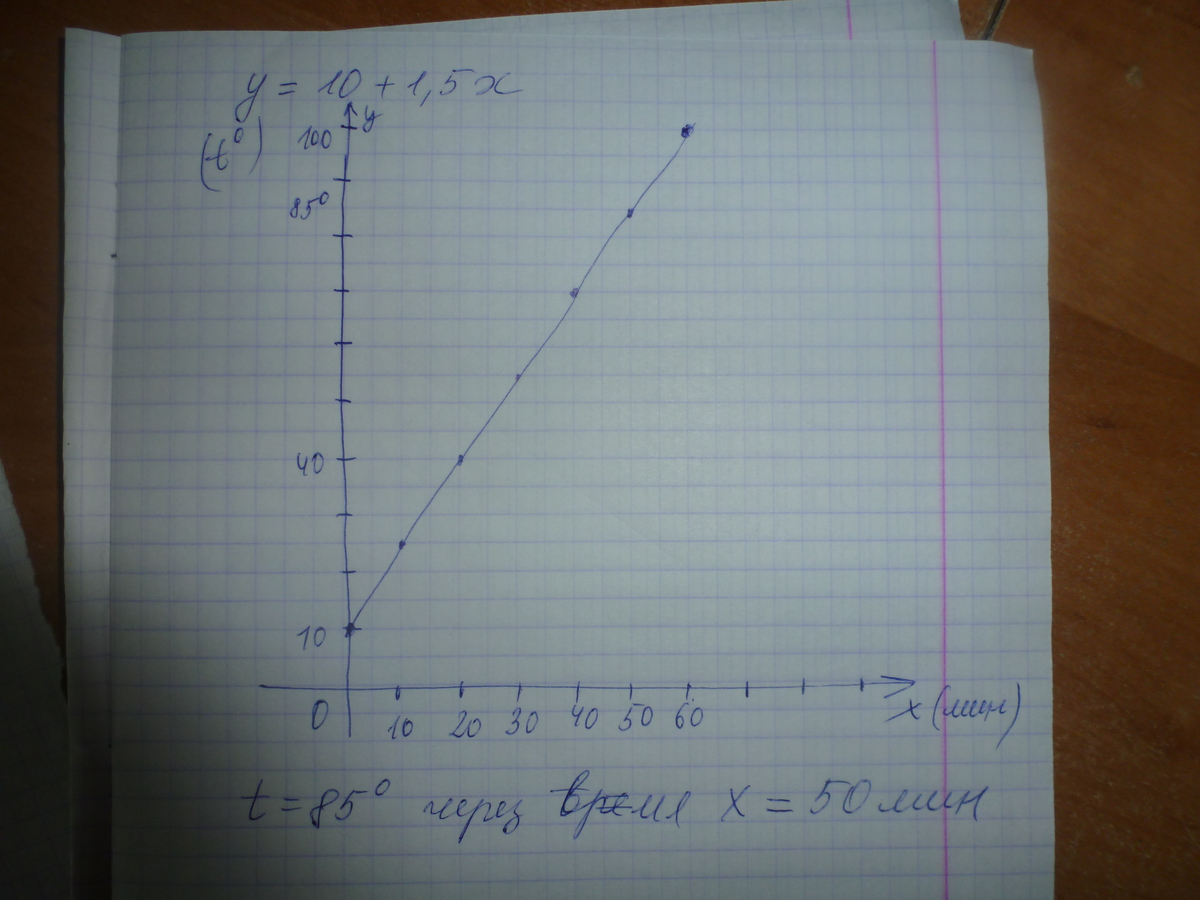 y = 10 + 1,5x
y
(t°)
100
85°
40
10
0
10 20 30 40 50 60
x (мин)
t = 85° через время x = 50 мин